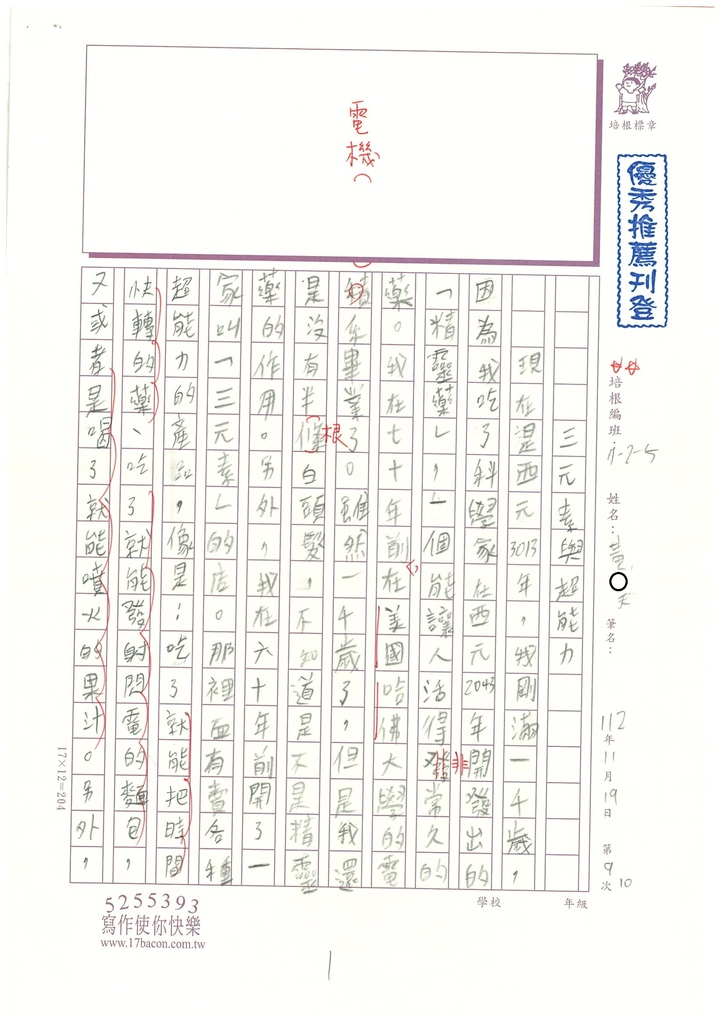 電機
培根標章
優秀推薦刊登
培根編班
姓名：黃
筆名：
112年11月19日 第9次
10
三元素與超能力
現在是西元3013年，我剛滿一千歲，
因為我吃了科學家在西元2043年開發出的
「精靈藥」，一個能讓人活得非常久的
藥。我在七十年前在美國哈佛大學的電
系畢業了。雖然一千歲了，但是我還
是沒有半根白頭髮，不知道是不是精靈
藥的作用。另外，我在六十年前開了一
家叫「三元素」的店。那裡面有賣各種
超能力的產品，像是：吃了就能把時間
快轉的藥、吃了就能發射閃電的麵包，
又或者是喝了就能噴火的果汁。另外，
17×12=204
5255393
寫作使你快樂
www.17bacon.com.tw
學校 年級
1